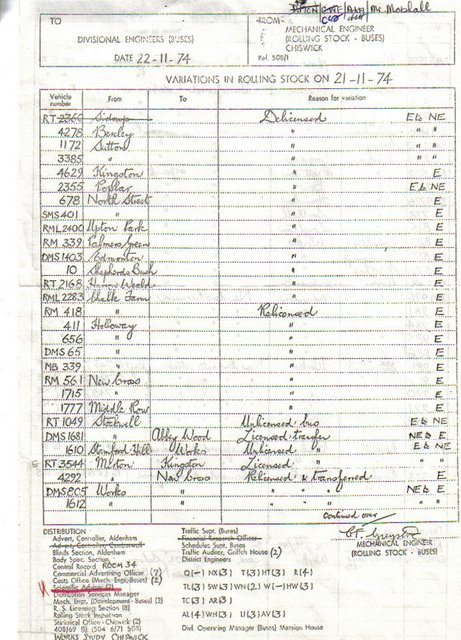 Mr Marshall
TO
DIVISIONAL ENGINEERS (BUSES)
DATE 22-11-74
FROM
MECHANICAL ENGINEER
(ROLLING STOCK - BUSES)
CHISWICK
Ref. 508/1
VARIATIONS IN ROLLING STOCK ON 21-11-74
Vehicle number From To Reason for variation
RT 2360 Sidcup Delicensed Eb NE
4278 Bexley " " "
1172 Sutton " " "
3385 " " " "
4629 Kingston " E
2355 Poplar " Eb NE
678 North Street " E
SMS 401 " " E
RML 2400 Upton Park " E
RM 339 Palmers Green " E
DMS 1403 Edmonton " E
10 Shepherds Bush " E
RT 2168 Harrow Weald " E
RML 2283 Chalk Farm " E
RM 418 " Relicensed E
411 Holloway " E
656 " " E
DMS 65 " " E
MB 339 " " E
RM 561 New Cross " E
1715 " " E
1777 Middle Row " E
RT 1049 Stockwell Unlicensed bus Eb NE
DMS 1681 " Abbey Wood Licensed transfer NEb E
1610 Stamford Hill Works Unlicensed " Eb NE
E RT 3544 Merton Kingston Licensed " " "
4292 " New Cross Relicensed & transferred E
DMS 805 Works " " " " NEb E
1612 " " " " " " "
continued over
MECHANICAL ENGINEER
(ROLLING STOCK - BUSES)
DISTRIBUTION
Advert. Controller, Aldenham
Blinds Section, Aldenham
Body Supt. Section
Central Record ROOM 34
Commercial Advertising Officer (7)
Costs Office (Mech: Engr. Buses) (2)
X Scientific Adviser (2)
Distribution Services Manager
Mech. Engr. (Development - Buses) (2)
R. S. Licensing Section (8)
Rolling Stock Inspection
Statistical Officer - Chiswick (2)
WORKS STUDY CHISWICK
Traffic Supt. (Buses)
Financial Research Officer
Scheduler, Supt. Buses
Traffic Auditor, Griffith House (2)
District Engineers
Q(-) NX(3) T(3) HT(3) R(4)
TL(3) SW(3) WN(2) W(-) HW(3)
TC(3) AR(3)
AL(4) WH(3) U(3) AV(3)
Divl. Operating Manager (Buses) Mansion House